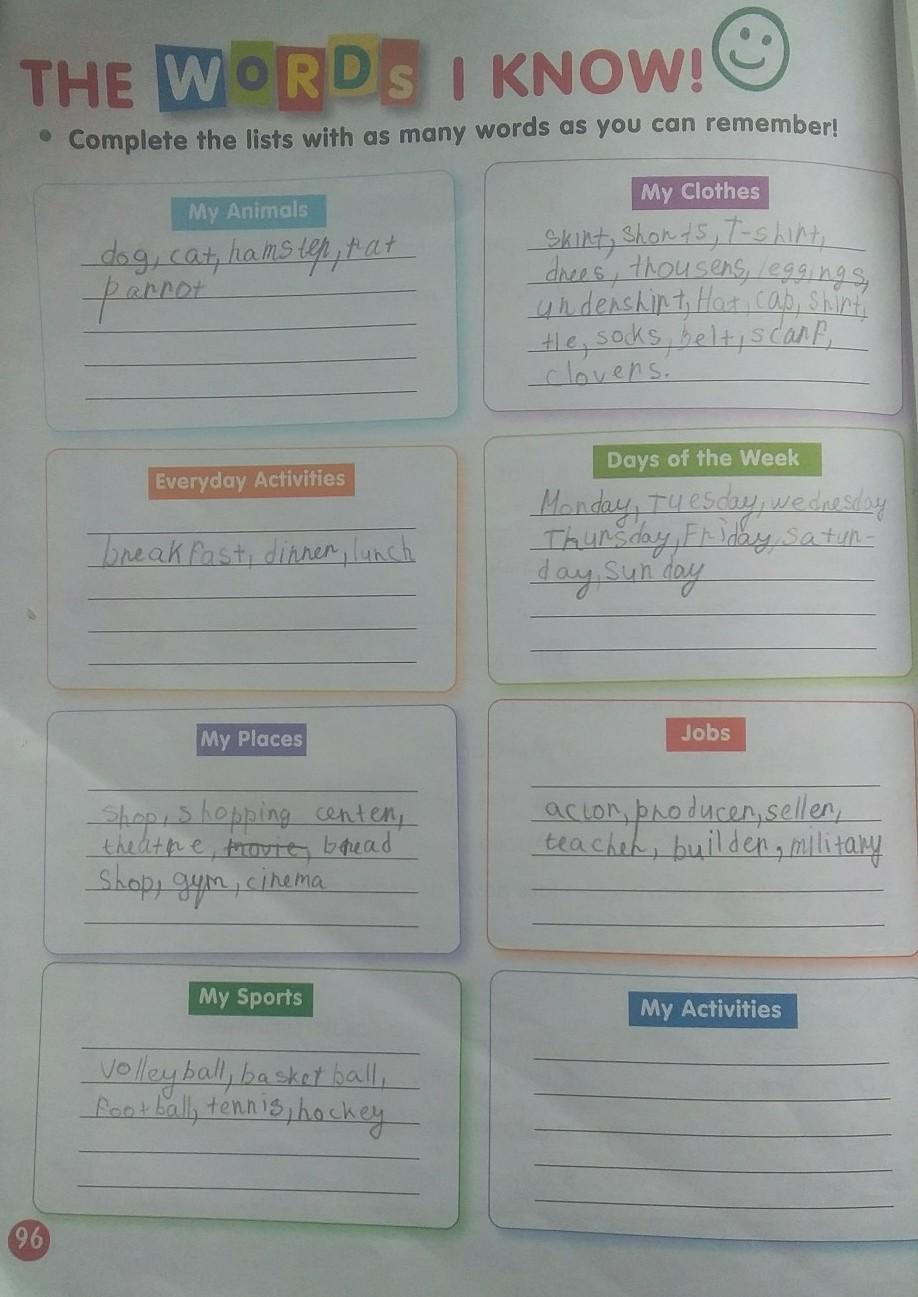 THE WORDS I KNOW!
• Complete the lists with as many words as you can remember!
My Animals
dog, cat, hamster, rat
parrot
My Clothes
Skirt, Shorts, T-shirt,
drees, thousers, leggings,
undershirt, Hat, cap, shirt,
tie, socks, belt, scarf,
clovers.
Everyday Activities
breakfast, dinner, lunch
Days of the Week
Monday, Tuesday, wednesday
Thursday, Friday, satur-
day, Sunday
My Places
Shop, shopping center,
theatre, movie, bread
Shop, gym, cinema
Jobs
acton, producer, seller,
teacher, builder, military
My Sports
volleyball, basketball,
football, tennis, hockey
My Activities
96